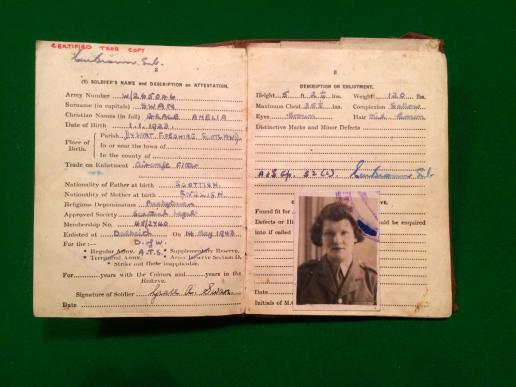 CERTIFIED TRUE COPY
2
(1) SOLDIER'S NAME and DESCRIPTION on ATTESTATION.
Army Number W/265046
Surname (in capitals) SWAN
Christian Names (in full) GRACE AMELIA
Date of Birth 1.1.1923.
Place of Birth.
Parish
In or near the town of
In the county of
Trade on Enlistment Aircraft Fitter
Nationality of Father at birth SCOTTISH.
Nationality of Mother at birth ENGLISH.
Religious Denomination Presbyterian
Approved Society Scottish Legal
Membership No.
Enlisted at Dalkeith On 14 May 1943.
For the :— D. of W.
Regular Army. A.T.S. Supplementary Reserve.
Territorial Army. Army Reserve Section D.
Strike out those inapplicable.
For years with the Colours and years in the
Reserve.
Signature of Soldier Grace A. Swan
Date
3
DESCRIPTION ON ENLISTMENT.
Height 5 ft 2½ ins. Weight 120 lbs.
Maximum Chest ins. Complexion Sallow
Eyes Brown Hair Brown
Distinctive Marks and Minor Defects
Found fit for
Defects or
be enquired
into if called
Date
Initials of M.